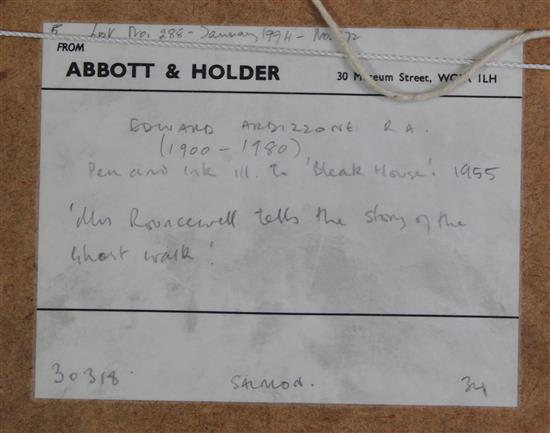 5 List No. 288 - January 1994 - No. 72
FROM
ABBOTT & HOLDER 30 Museum Street, WC1A 1LH
EDWARD ARDIZZONE R.A.
(1900 - 1980)
Pen and ink ill. to 'Bleak House'. 1955
'Mrs Rouncewell tells the story of the
Ghost walk'.
30318. SALMON. 34